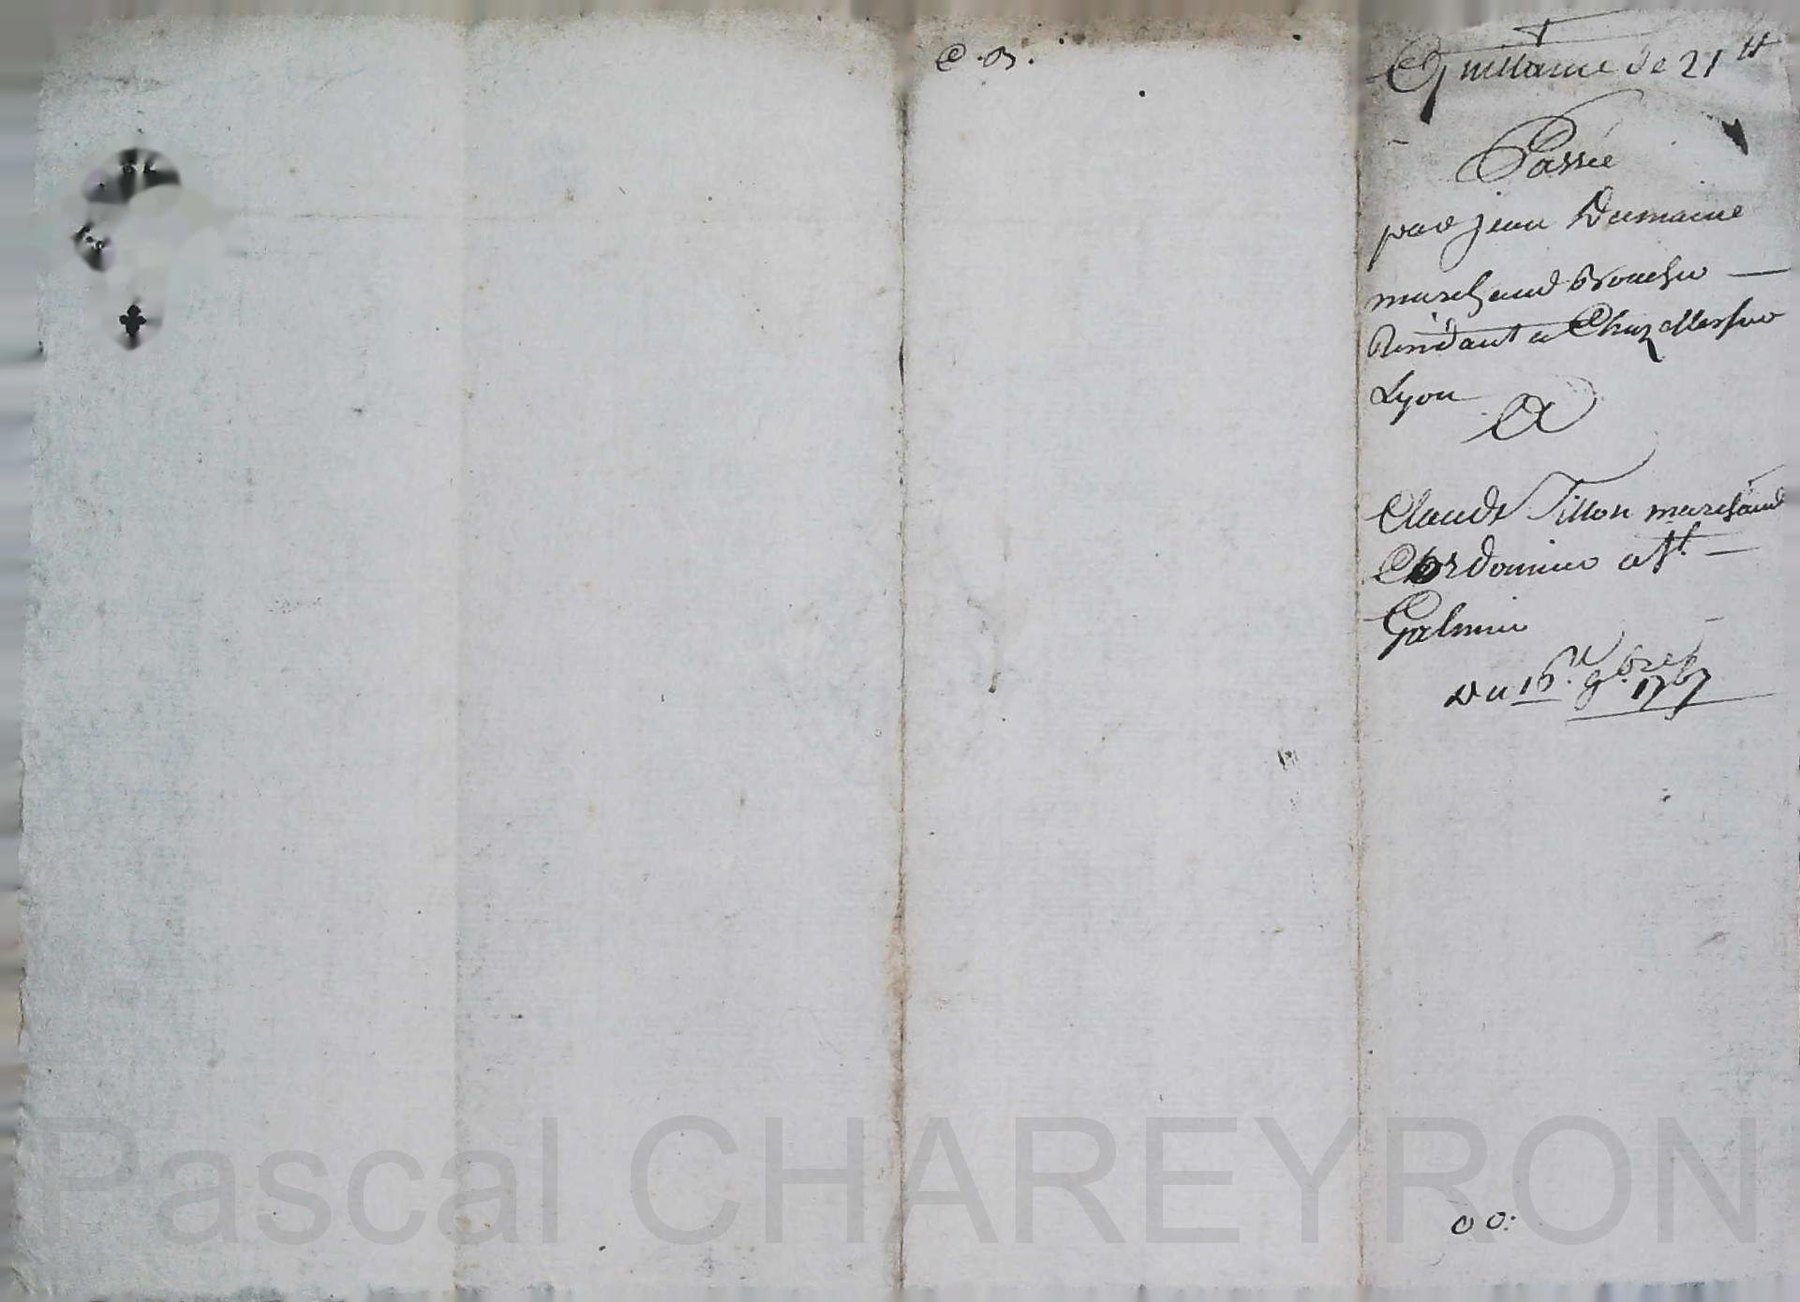 C. B.
Quittance de 21 ₶
Passée
par jean Dumaine
marchand Boucher
Residant a Chazelles sur
Lyon
A
Claude Tillon marchand
Cordonnier a St.
Galmier
Du 16.e 9.bre 1767
00:
Pascal CHAREYRON